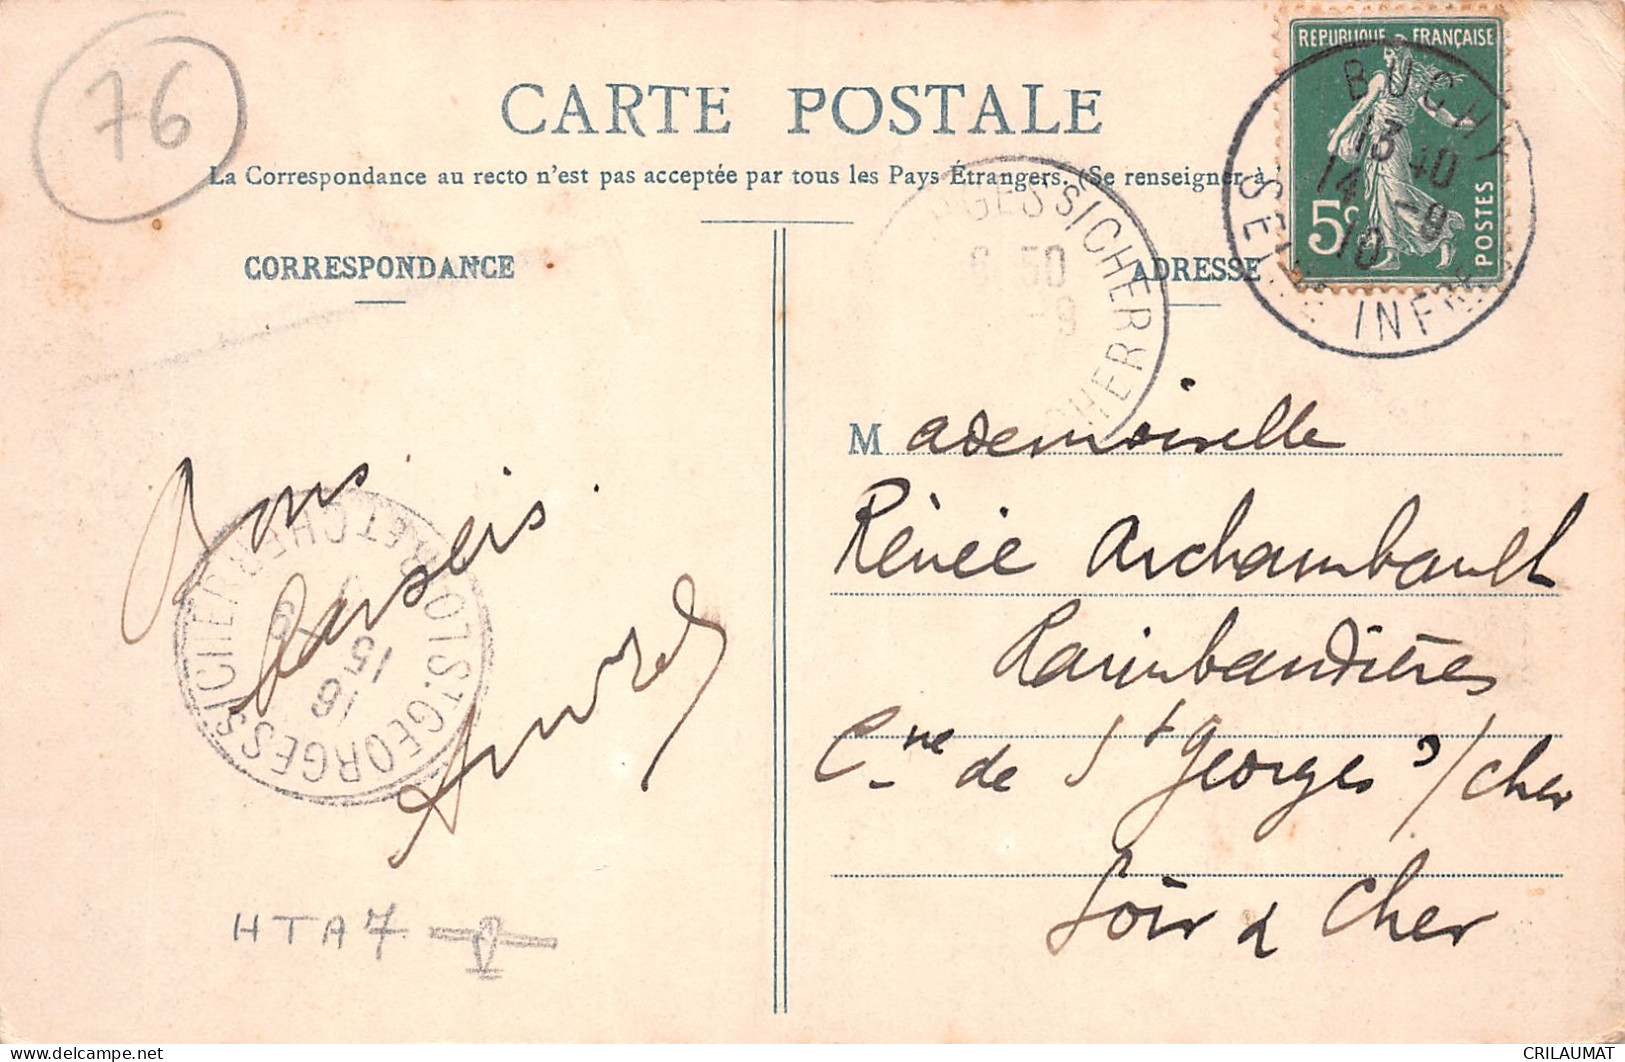 76
CARTE POSTALE
La Correspondance au recto n'est pas acceptée par tous les Pays Étrangers. (Se renseigner à
CORRESPONDANCE
ADRESSE
REPUBLIQUE FRANÇAISE
5c
POSTES
BUCHY
13 40
14 -9
10
SEINE INFRE
GES S/CHER
6 50
-9
CHER
Mademoiselle
Rénée Archambault
Raimbaudières
Cne de St Georges s/cher
Loir & Cher
Bons
baisers.
ST GEORGES S/CHER
LOIR ET CHER
16
15 -9
HTA7
CRILAUMAT
delcampe.net